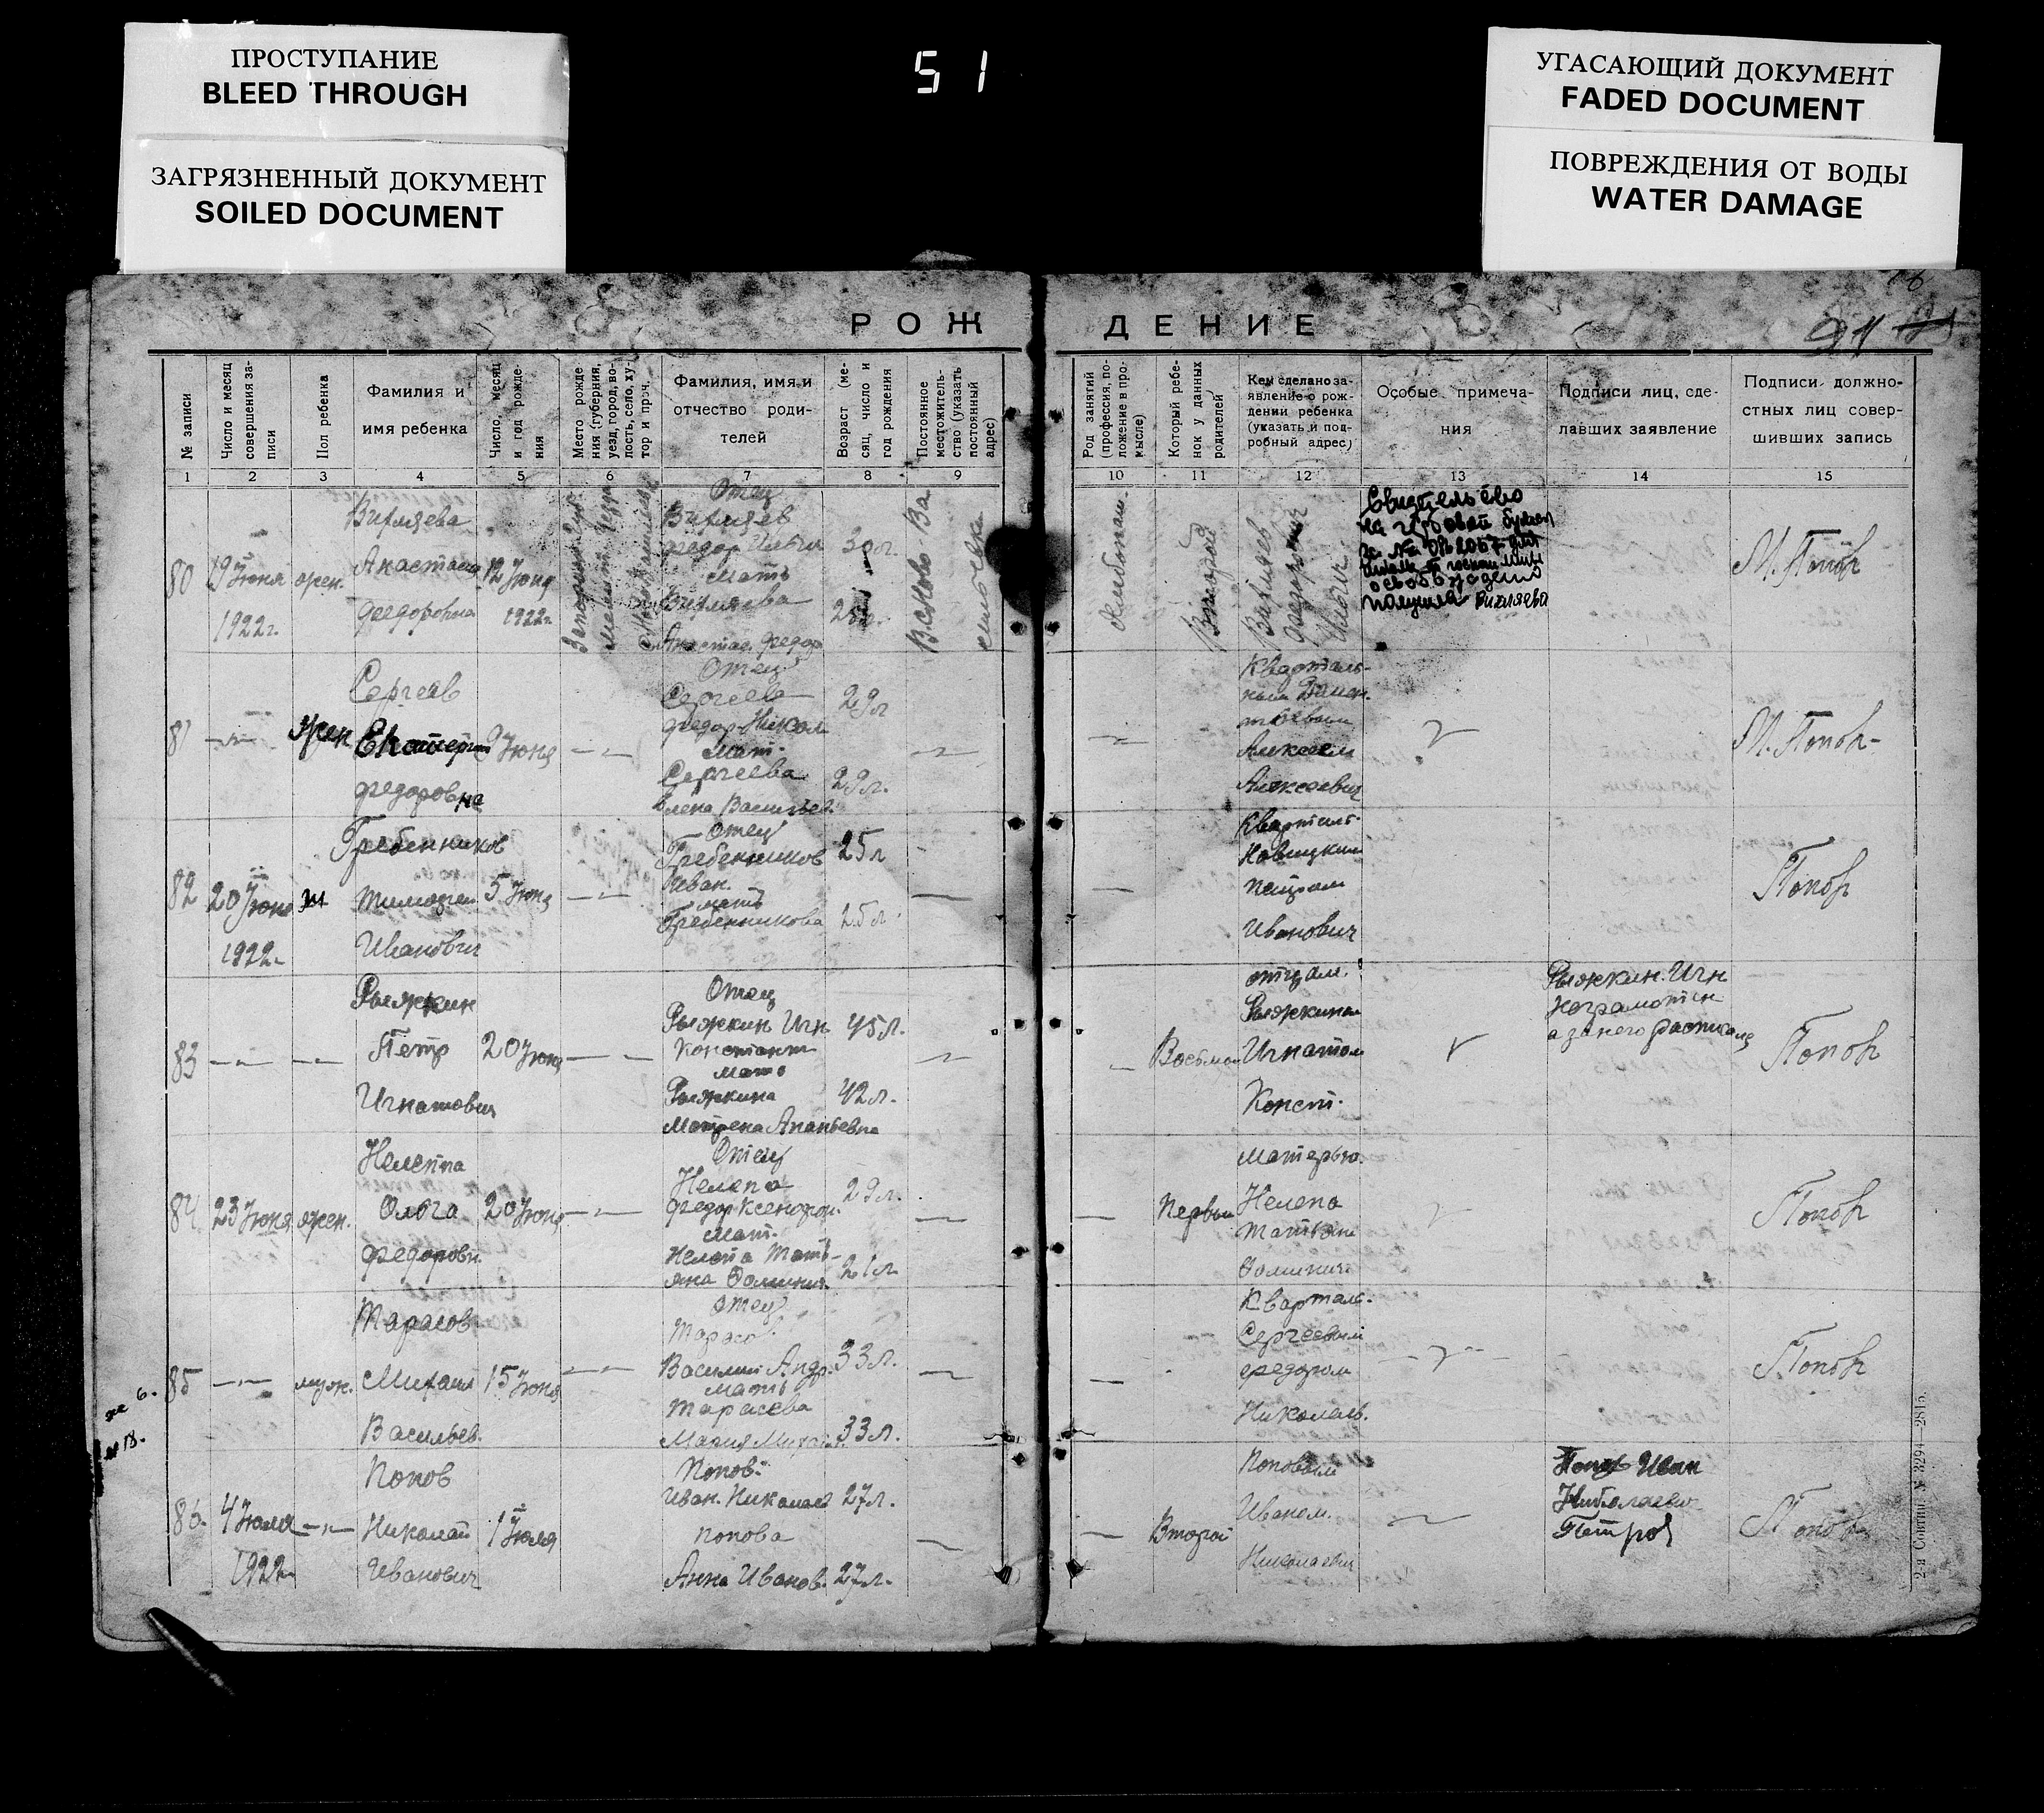 ПРОСТУПАНИЕ
BLEED THROUGH
ЗАГРЯЗНЕННЫЙ ДОКУМЕНТ
SOILED DOCUMENT
51
УГАСАЮЩИЙ ДОКУМЕНТ
FADED DOCUMENT
ПОВРЕЖДЕНИЯ ОТ ВОДЫ
WATER DAMAGE
РОЖДЕНИЕ
№ записи
Число и месяц
совершения за-
писи
Пол ребенка
Фамилия и
имя ребенка
Число, месяц
и год рожде-
ния
Место рожде
ния (губерния,
уезд, город, во-
лость, село, ху-
тор и проч.
Фамилия, имя и
отчество роди-
телей
Возраст (ме-
сяц, число и
год рождения
Постоянное
местожитель-
ство (указать
постоянный
адрес)
Род занятий
(профессия, по-
ложение в про-
мысле)
Который ребе-
нок у данных
родителей
Кем сделано за-
явление о рож-
дении ребенка
(указать и под-
робный адрес)
Особые примеча-
ния
Подписи лиц, сде-
лавших заявление
Подписи должно-
стных лиц совер-
шивших запись
1 2 3 4 5 6 7 8 9 10 11 12 13 14 15
80
19 Июня
1922г.
жен.
Вихляева
Анастасия
Федоровна
12 Июня
1922г.
Отец
Вихляев
Федор Ильич
30 л.
мать
Вихляева
Анастас. Федор
Второй
Вихляев
Федор
Ильич
получила Вихляева
М. Попов
81
жен
Сергеев
Екатерин
Федоровна
9 Июня
Отец
Сергеев
Федор Никол
29 л
Мат.
Сергеева
Елена Васильев.
29 л.
Кварталь-
Алексеем
Алексеевич
М. Попов
82
20 Июня
1922г.
м
Гребенников
Тимофей
Иванович
5 Июня
Отец
Гребенников
Иван.
25 л
мать
Гребенникова
25 л.
Квартал.
Новицким
Петром
Иванович
Попов
83
Рыжкин
Петр
Игнатович
20 Июня
Отец
Рыжкин Игн
Констант
45 л.
мать
Рыжкина
Матрена Ананьевна
42 л.
Восьмой
отцом.
Рыжкиным
Игнатом
Конст.
Рыжкин Игн
неграмотен
а за него расписался
Попов
84
23 Июня
жен.
Нелепа
Ольга
Федоровн.
20 Июня
Отец
Нелепа
Федор Ксенофон.
29 л.
Мат.
Нелепа Тать-
яна Фоминич.
21 л.
Первый
Матерью.
Нелепа
Татьяна
Фоминич.
Попов
85
муж.
Тарасов
Михаил
Васильев.
15 Июня
отец
Тарасов
Василий Андр.
33 л.
мать
Тарасева
Мария Михайл.
33 л.
Квартал.
Сергеевым
Федором
Николаев.
Попов
86.
4 Июля
1922г.
Попов
Николай
Иванович
1 Июля
Попов
Иван. Николаев
27 л.
Попова
Анна Иванов.
27 л.
Второй
Поповым
Иваном.
Николаевич
Попов Иван
Николаевич
Петров
Попов
2-я Совтип. № 3294—2815.